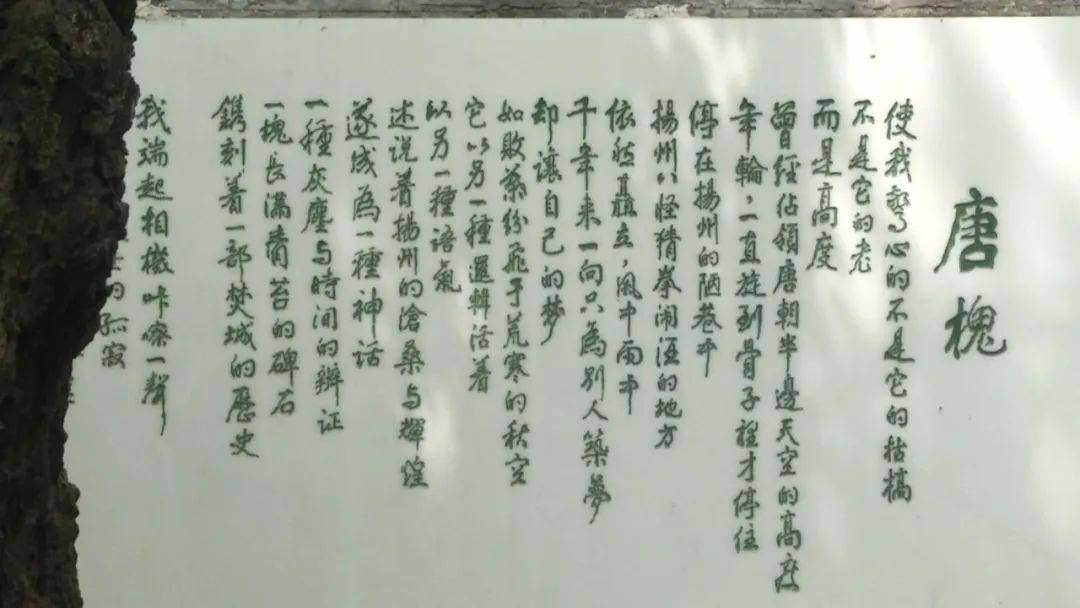 唐槐
使我驚心的不是它的枯槁
不是它的老
而是高度
曾經佔領唐朝半邊天空的高度
年輪，一直旋到骨子裡才停住
停在揚州的陋巷中
揚州八怪猜拳闹酒的地方
依然矗立，風中雨中
千年来一向只為別人築夢
却讓自己的梦
如敗葉纷飛于荒寒的秋空
它以另一種邏輯活着
以另一種語氣
述说着揚州的滄桑与輝煌
遂成為一種神话
一種灰塵与時间的辨证
一塊長满青苔的碑石
鐫刻着一部焚城的歷史
我端起相機咔嚓一聲
的孤寂